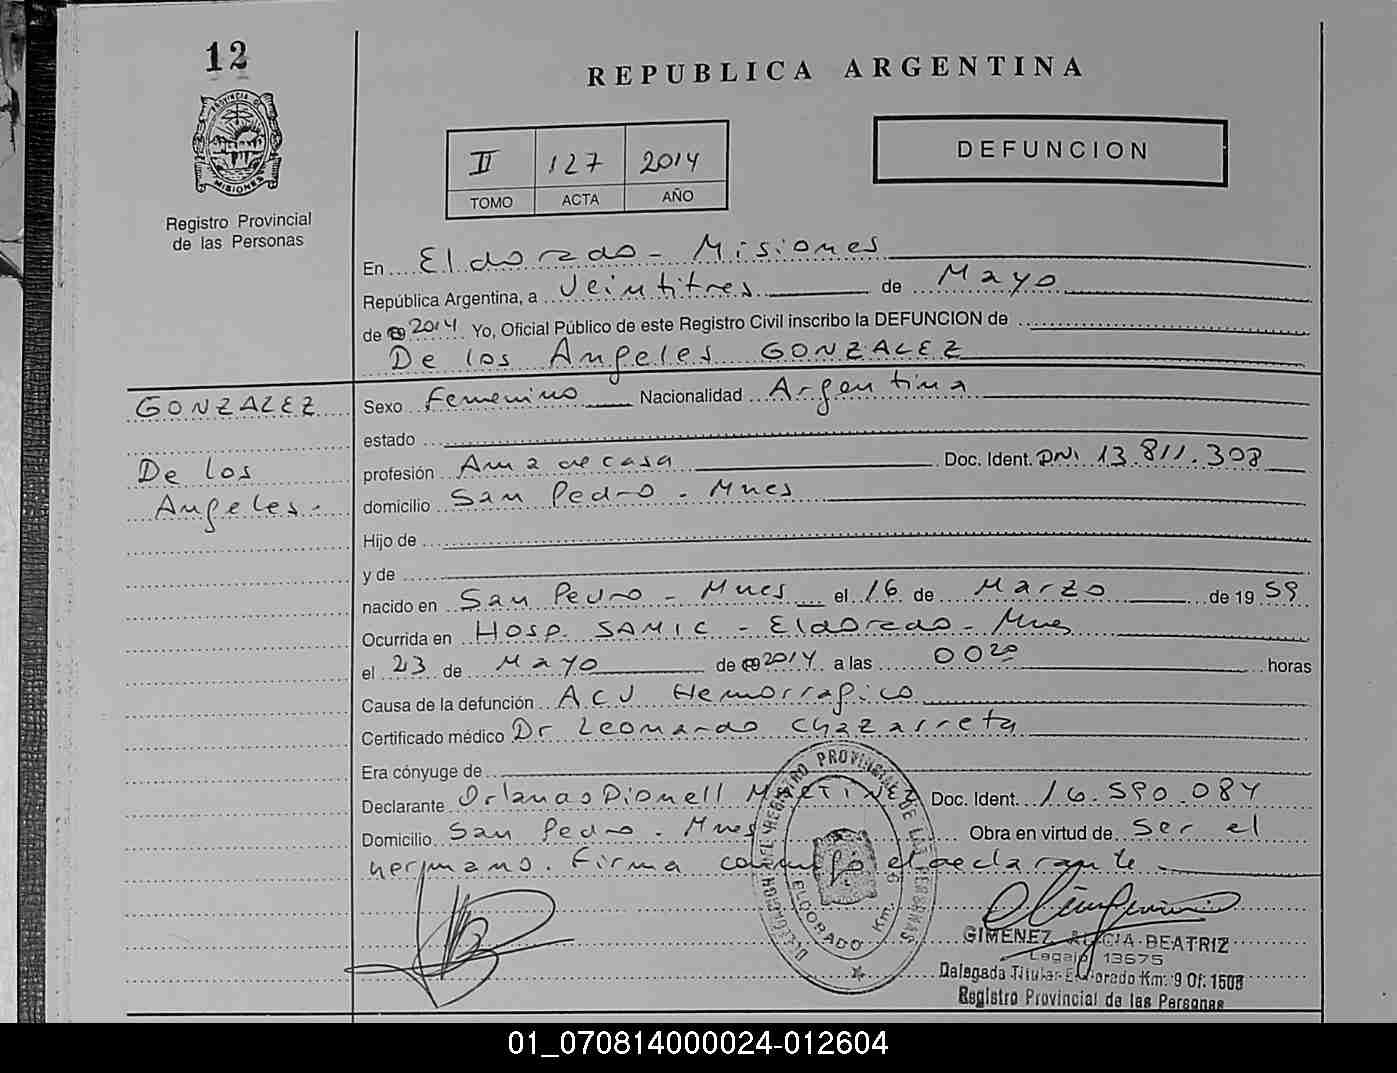 12
REPUBLICA ARGENTINA
PROVINCIA DE
MISIONES
Registro Provincial
de las Personas
II 127 2014
TOMO ACTA AÑO
DEFUNCION
En Eldorado - Misiones
República Argentina, a Veintitres de Mayo
de 2014 Yo, Oficial Público de este Registro Civil inscribo la DEFUNCION de
De los Angeles GONZALEZ
GONZALEZ
De los
Angeles.-
Sexo Femenino Nacionalidad Argentina
estado
profesión Ama de casa Doc. Ident. DNI 13.811.308
domicilio San Pedro - Mnes
Hijo de
y de
nacido en San Pedro - Mnes el 16 de Marzo de 19 59
Ocurrida en Hosp. SAMIC - Eldorado - Mnes
el 23 de Mayo de 2014 a las 00 20 horas
Causa de la defunción ACV Hemorragico
Certificado médico Dr Leonardo Chazarreta
Era cónyuge de
Declarante Dionell Doc. Ident. 16.590.084
Domicilio San Pedro - Mnes Obra en virtud de Ser el
hermano. Firma conmigo el declarante -
REGISTRO PROVINCIAL DE LAS PERSONAS
ELDORADO Km. 9
GIMENEZ ALICIA BEATRIZ
Legajo 13575
Delegada Titular Eldorado Km. 9 Of. 1508
Registro Provincial de las Personas
01_070814000024-012604